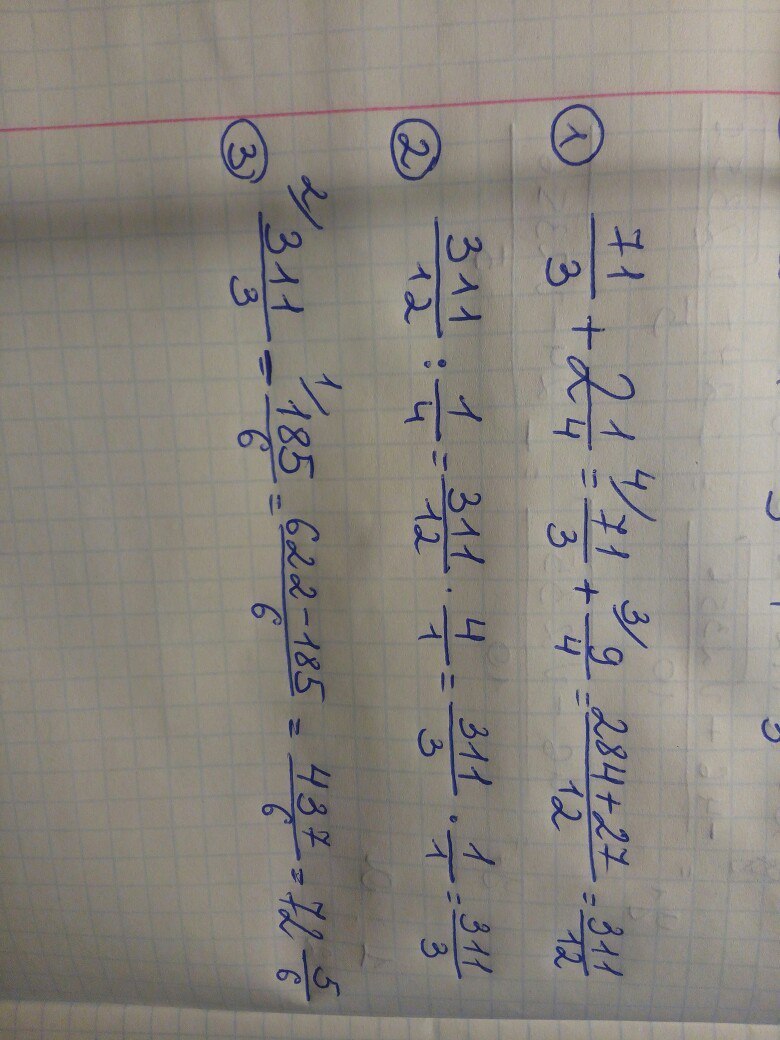 ① 71/3 + 2 1/4 = ⁴⁄71/3 + ³⁄9/4 = 284+27/12 = 311/12
② 311/12 : 1/4 = 311/12 · 4/1 = 311/3 · 1/1 = 311/3
③ ²⁄311/3 - ¹⁄185/6 = 622-185/6 = 437/6 = 72 5/6